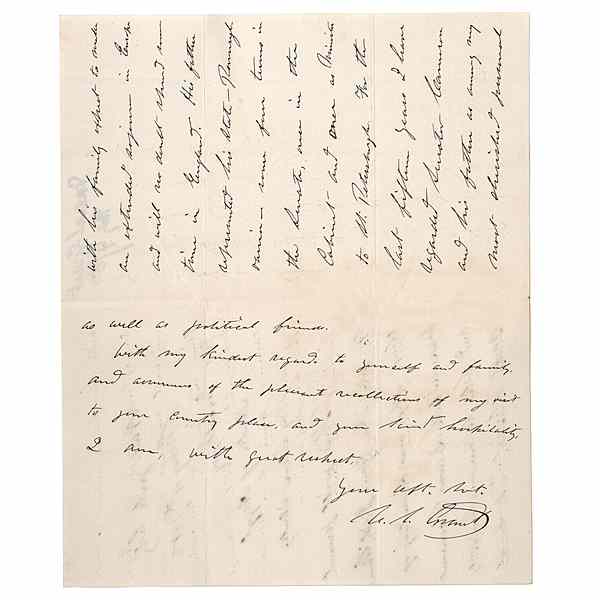 with his family expect to make
an extended sojourn in Europe
and will no doubt spend some
time in England. His father
represented his state—Pennsyl-
vania—some four terms in
the Senate, once in the
Cabinet—and once as Minister
to St. Petersburgh. For the
last fifteen years I have
regarded Senator Cameron
and his father as among my
most cherished personal
as well as political friends.
With my kindest regards to yourself and family,
and assurances of the pleasant recollections of my visit
to your country place, and your kind hospitality,
I am, with great respect,
Your obt. svt.
U. S. Grant